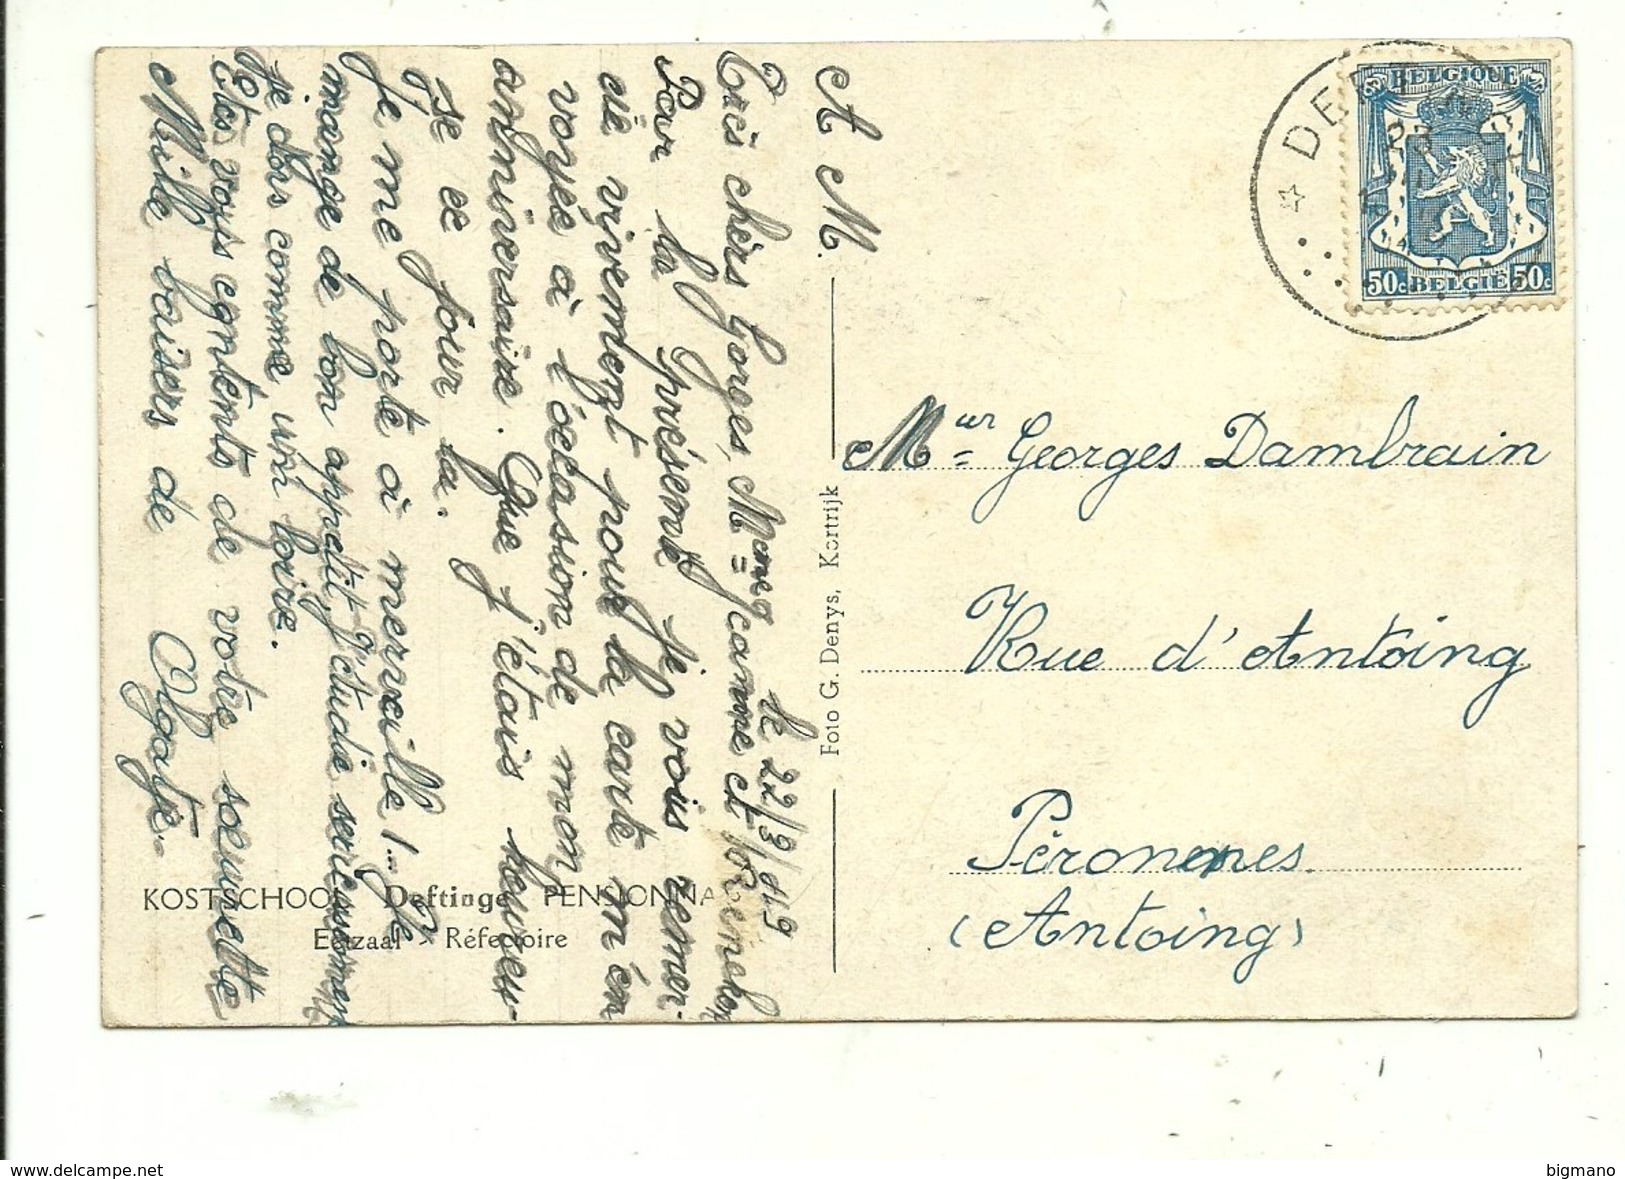 A M.
le 22/9/49
Très chèrs Gorges, Mme = Carme et
Par la présente je vois remer-
cié vivement pour la carte m'en
voyée à l'occasion de mon
anniversaire. Que j'étais heureu-
se ce jour la.
Je me porte à merveille! ... Je
mange de bon appetit, j'étudie serieusement
je dors comme un loire.
Etes vois contents de votre soeurette
Mille baisers de Olgatje.
KOSTSCHOOL Deftinge PENSIONNA
Eetzaal Réfectoire
Foto G. Denys, Kortrijk
BELGIQUE
50c BELGIË 50c
DEFT
Meur = Georges Dambrain
Rue d'Antoing
Péronnes
(Antoing)
www.delcampe.net
bigmano